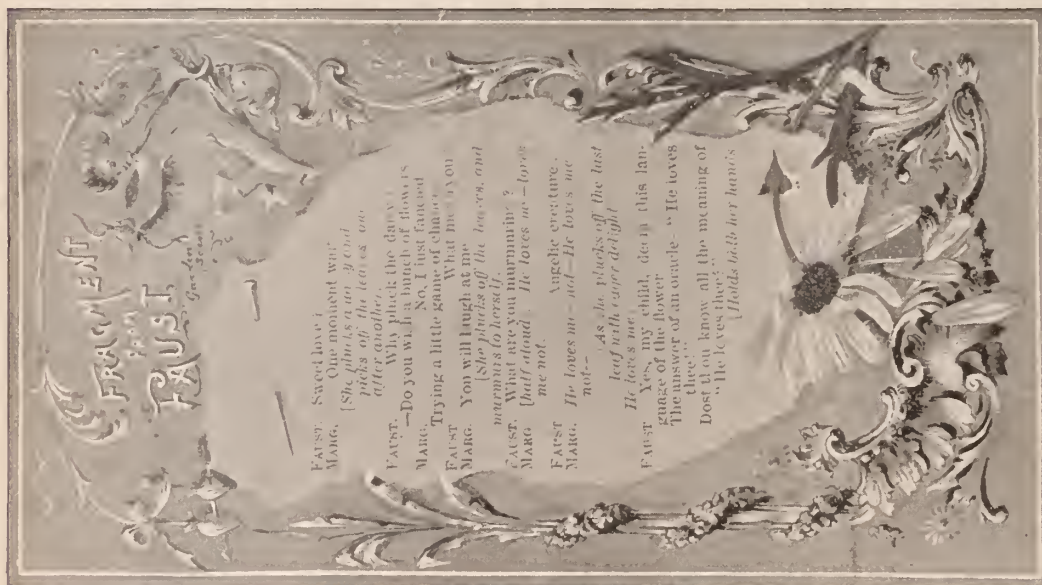 FRAGMENT
from
FAUST.
Garden
Scene
FAUST. Sweet love!
MARG. One moment
[She plucks a and
picks off the leaves one
after another
FAUST. Why pluck the daisy?
—Do you wish a bunch of flowers
MARG. No, I just fancied
Trying a little game of chance
FAUST What mean you
MARG. You will laugh at me
[She plucks off the leaves, and
murmurs to herself.
FAUST. What are you murmuring?
MARG [half aloud He loves me—loves
me not.
FAUST Angelic creature.
MARG. He loves me—not—He loves me
not--
[As she plucks off the last
leaf with eager delight
He loves me!
FAUST Yes, my child, deem this lan-
guage of the flower
The answer of an oracle—"He loves
thee!"
Dost thou know all the meaning of
"He loves thee?"
[Holds both her hands